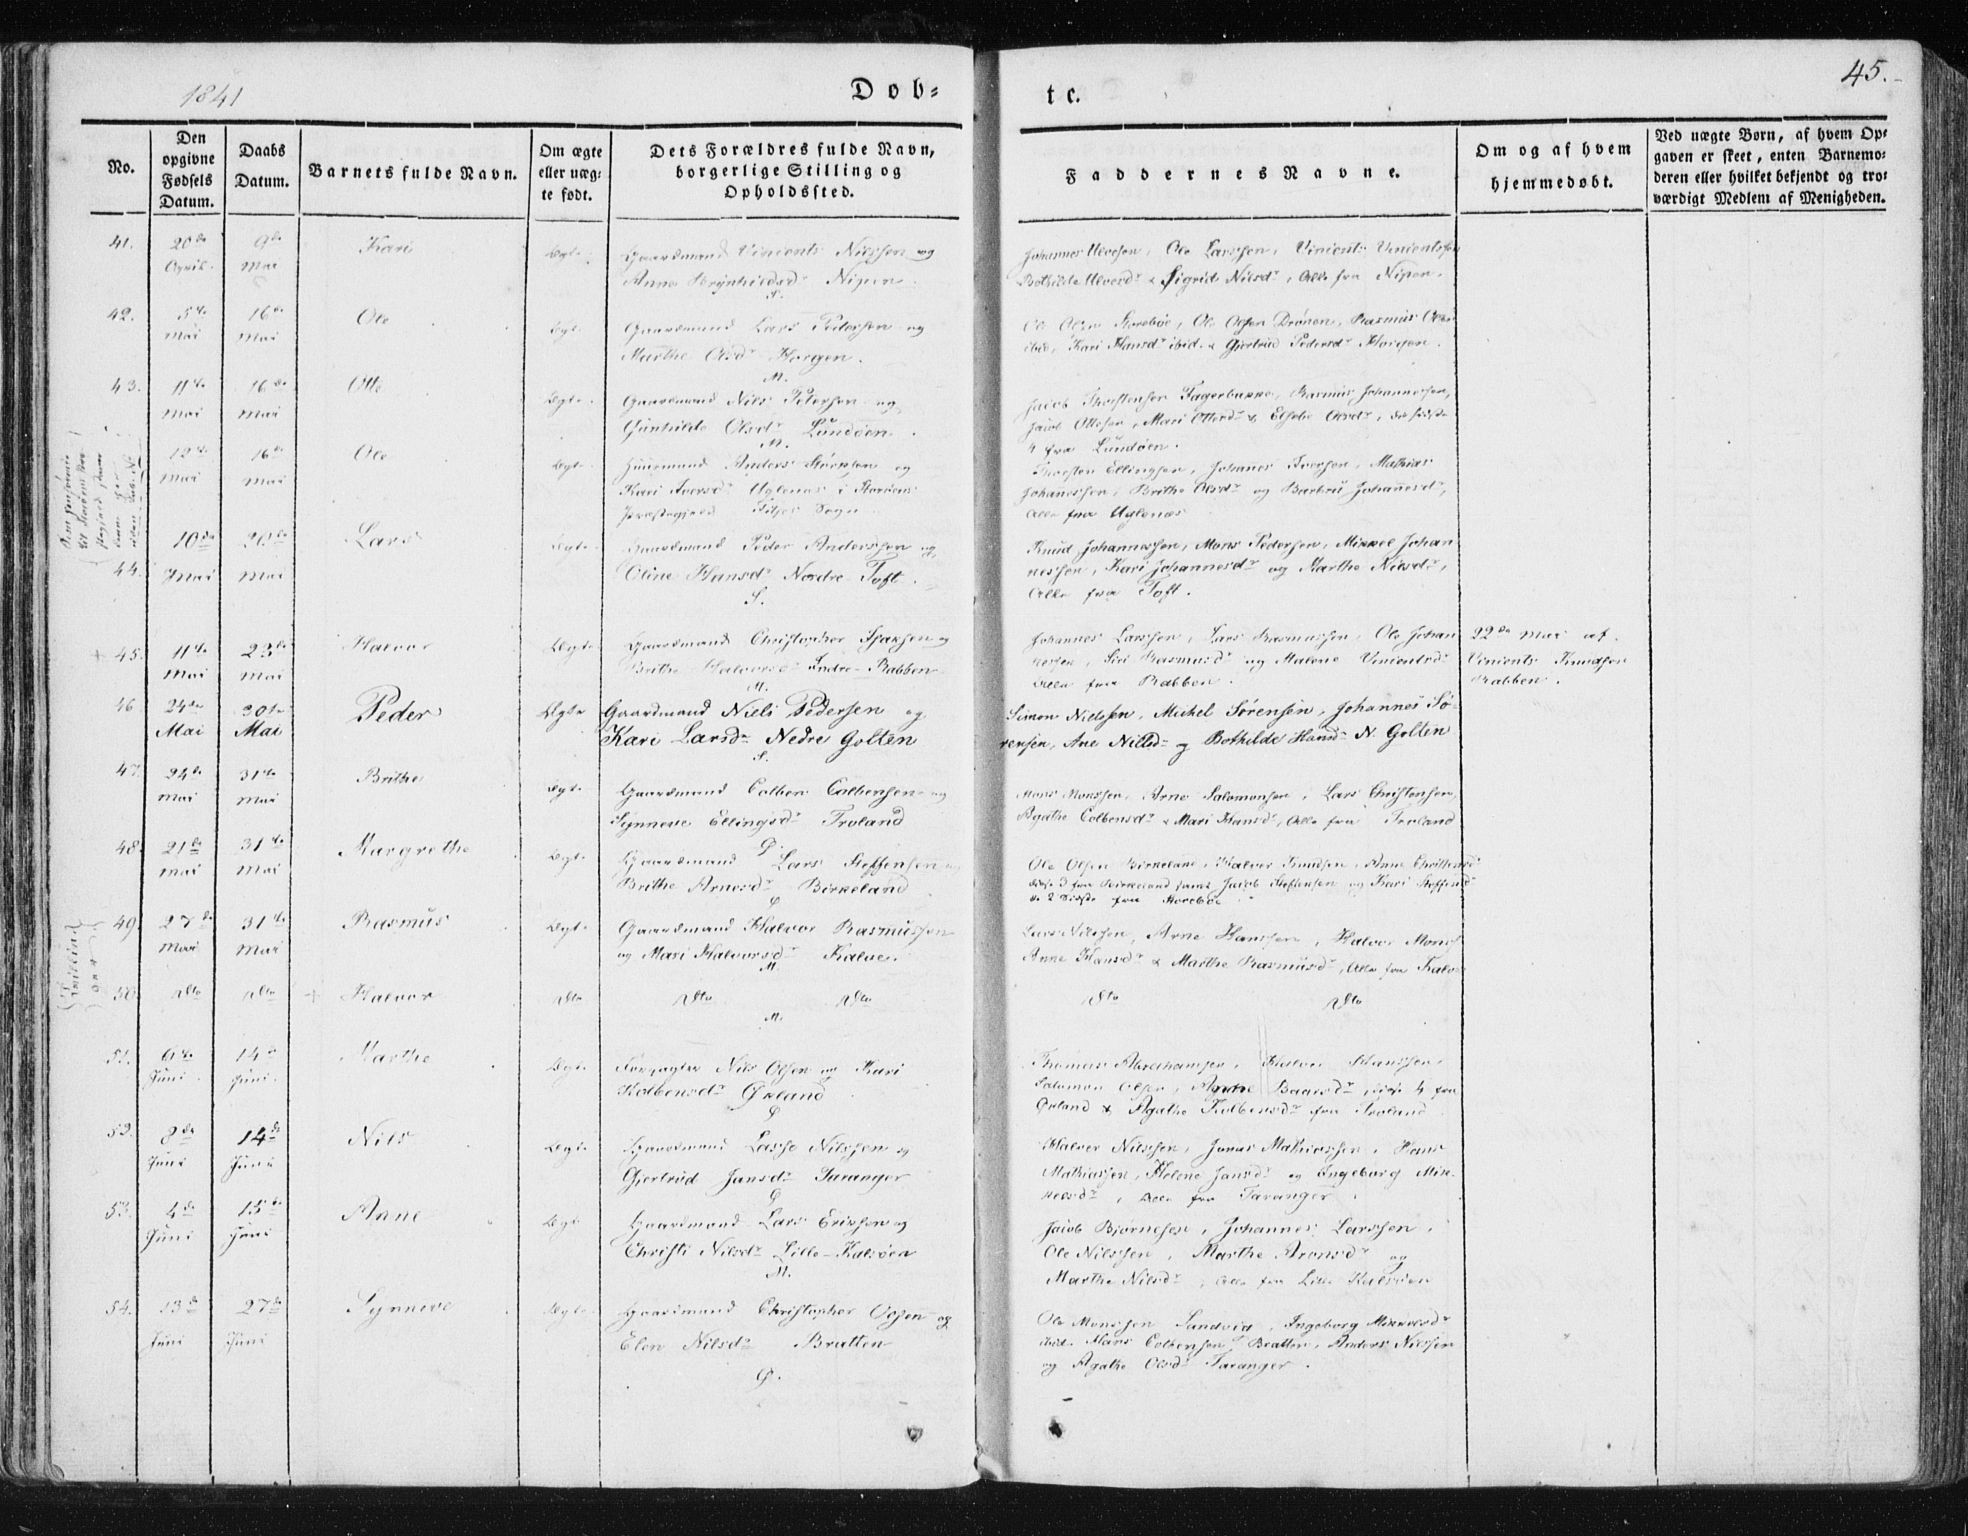 1841
Døb-
te.
45.
No.
Den opgivne Fødsels Datum.
Daabs Datum.
Barnets fulde Navn.
Om ægte eller uægte født.
Dets Forældres fulde Navn, borgerlige Stilling og Opholdssted.
Faddernes Navne.
Om og af hvem hjemmedøbt.
Ved uægte Børn, af hvem Opgaven er skeet, enten Barnemoderen eller hvilket bekjendt og troværdigt Medlem af Menigheden.
41. 20de 9de Kari Ægte Gaardmand Vincents Nilssen og
April Mai Anna Brynhildsdr Nipen.
Johannes Ulvesen, Ole Larssen, Vincents Vincentssen
Bothilde Ulvesdr & Sigrid Nilsdr, Alle fra Nipen.
S.
42. 5te 16de Ole Ægte Gaardmand Lars Pedersen og
Mai Mai Marthe Olsdr Horgen.
Ole Olsen Storebøe, Ole Olsen Drönen, Rasmus Olsen
ibid, Kari Hansdr ibid. & Gjertrud Pedersdr Horgen.
M.
43. 11te 16de Otto Ægte Gaardmand Nils Petersen og
Mai Mai Gunhilde Olsdr Lundøen.
Jacob Thorstensen Fagerbakke, Rasmus Johannessen,
Jacob Ottesen, Mari Ottersdr & Elsebe Olsdr, de sidste
4 fra Lundøen.
M.
12te 16de Ole Ægte Huusmand Anders Størksen og
Mai Mai Kari Iversdr Uglenæs i Storøens
Præstegjeld Fitjer Sogn
Thorsten Ellingsen, Johanes Iversen, Mathias
Johanessen, Brithe Olsdr og Barbru Johannesdr,
Alle fra Uglenæs
10de 20de Lars Ægte Gaardmand Peder Anderssen og
44. Mai Mai Oline Hansdr Nordre Toft.
Knud Johannessen, Mons Pedersen, Mikkel Johan
nessen, Kari Johannesdr og Marthe Nilsdr,
Alle fra Toft.
S.
+ 45. 11te 23de Halvor Ægte Gaardmand Christopher Isaksen og
Mai Mai Brithe Halvorsdr Indre Rabben
Johannes Larssen, Lars Rasmussen, Ole Johan
nessen, Siri Rasmusdr og Malene Vincentsdr
Alle fra Rabben.
22de Mai af
Vincents Knudsen
Rabben.
M.
46 24de 30te Peder Ægte Gaardmand Niels Pedersen og
Mai Mai Kari Larsdr Nedre Golten
Simon Nielssen, Mickel Sørensen, Johannes Sø-
rensen, Ane Nielsdr og Bothilde Hansdr N. Golten
S.
47. 24de 31te Brithe Ægte Gaardmand Colben Colbensen og
Mai Mai Synneve Ellingsdr Troland
Mons Monssen, Arne Salomonsen, Lars Christensen,
Agathe Colbensdr & Mari Hansdr, Alle fra Troland
48. 21de 31te Margrethe Ægte Gaardmand Lars Steffensen og
Mai Mai Brithe Arnesdr Birkeland
Ole Olsen Birkeland, Halvor Knudsen, Anne Christensdr
disse 3 fra Birkeland samt Jacob Steffensen og Kari Steffensdr
de 2 sidste fra Storebøe
49. 27de 31te Rasmus Ægte Gaardmand Halvor Rasmussen
Mai Mai og Mari Halvorsdr Kalve.
Lars Nilssen, Arne Hanssen, Halvor Mons
Anne Hansdr & Marthe Rasmusdr, Alle fra Kalve
M.
{Tvillinger}
50. dto dto + Halvor dto dto dto
dto dto
M.
51. 6te 14de Marthe Ægte Nils Olsen og Kari
Juni Juni Kolbensdr Øxland
Thomas Abrahamsen, Halvor Hanssen,
Salomon Olsen, Baarsdr, disse 4 fra
Øxland & Agathe Kolbensdr fra Troland
52. 8de 14de Nils Ægte Gaardmand Lasse Nilssen og
Juni Juni Gjertrud Jansdr Taranger
Halvor Nilssen, Jonas Mathiassen, Hans
Mathiasen, Helene Jansdr og Ingeborg Mik-
kelsdr, Alle fra Taranger.
53. 4de 15de Anne Ægte Gaardmand Lars Eriksen og
Juni Juni Christi Nilsdr Lille-Kalsøen
Jacob Bjørnesen, Johannes Larssen,
Ole Nilssen, Marthe Aronsdr og
Marthe Nilsdr, Alle fra Lille Kalsøen
M.
54. 13de 27de Synneve Ægte Gaardmand Christopher Olsen og
Juni Juni Elen Nilsdr Bratten
Ole Monssen Sandvig, Ingeborg Mikkelsdr
ibid. Hans Colbensen Bratten, Anders Nilssen
og Agathe Olsdr Taranger.